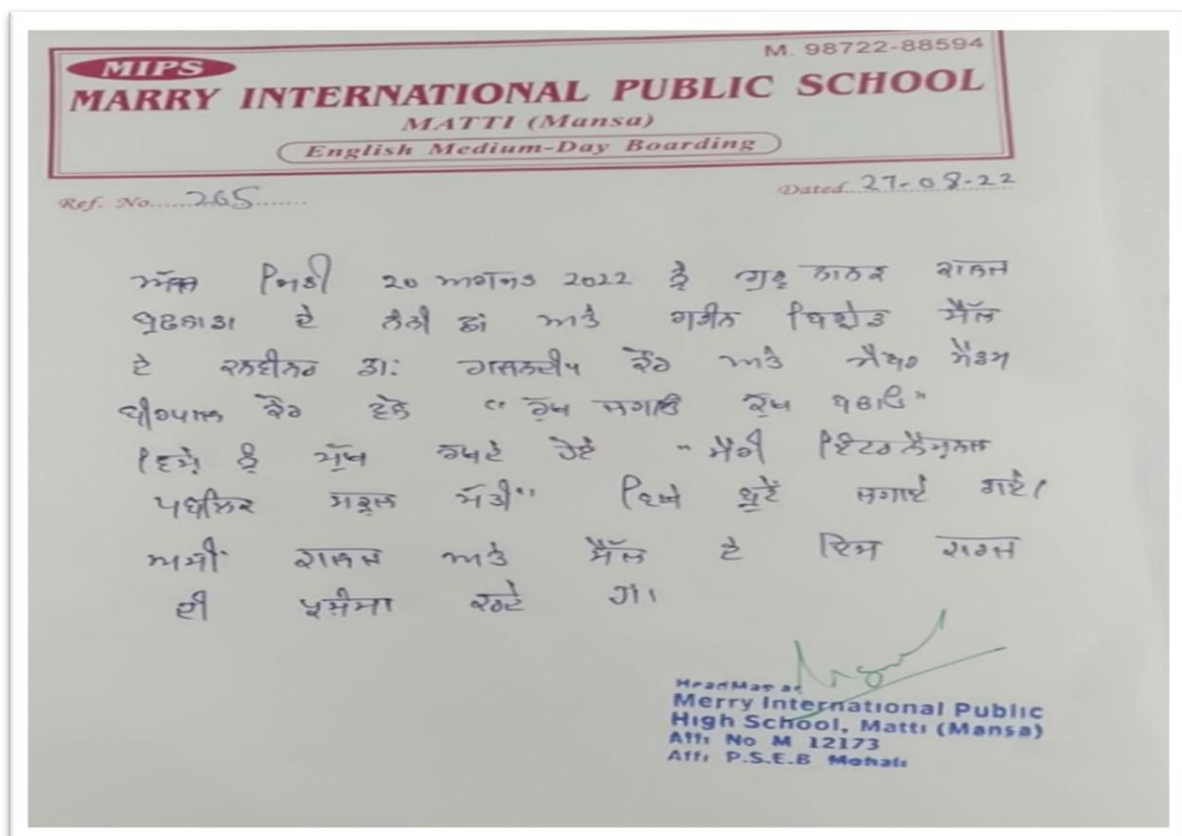 M. 98722-88594
MIPS
MARRY INTERNATIONAL PUBLIC SCHOOL
MATTI (Mansa)
English Medium-Day Boarding
Ref. No. 265
Dated 27-08-22
ਅੱਜ ਮਿਤੀ 20 ਅਗਸਤ 2022 ਨੂੰ ਗੁਰੂ ਨਾਨਕ ਕਾਲਜ
ਬੁਢਲਾਡਾ ਦੇ ਨੰਨੀ ਛਾਂ ਅਤੇ ਗਰੀਨ ਸੈੱਲ
ਦੇ ਕਨਵੀਨਰ ਡਾ: ਕੌਰ ਅਤੇ ਮੈਂਬਰ ਮੈਡਮ
ਵੀਰਪਾਲ ਕੌਰ ਵੱਲੋਂ " ਰੁੱਖ ਲਗਾਓ ਰੁੱਖ ਬਚਾਓ"
ਵਿਸ਼ੇ ਨੂੰ ਮੁੱਖ ਰੱਖਦੇ ਹੋਏ "ਮੈਰੀ ਇੰਟਰਨੈਸ਼ਨਲ
ਪਬਲਿਕ ਸਕੂਲ ਮੱਤੀ" ਵਿਖੇ ਬੂਟੇ ਲਗਾਏ ਗਏ।
ਅਸੀਂ ਕਾਲਜ ਅਤੇ ਸੈੱਲ ਦੇ ਇਸ ਕਾਰਜ
ਦੀ ਪ੍ਰਸ਼ੰਸਾ ਕਰਦੇ ਹਾਂ।
Merry International Public
High School, Matti (Mansa)
Affi No M 12173
Affi P.S.E.B Mohali